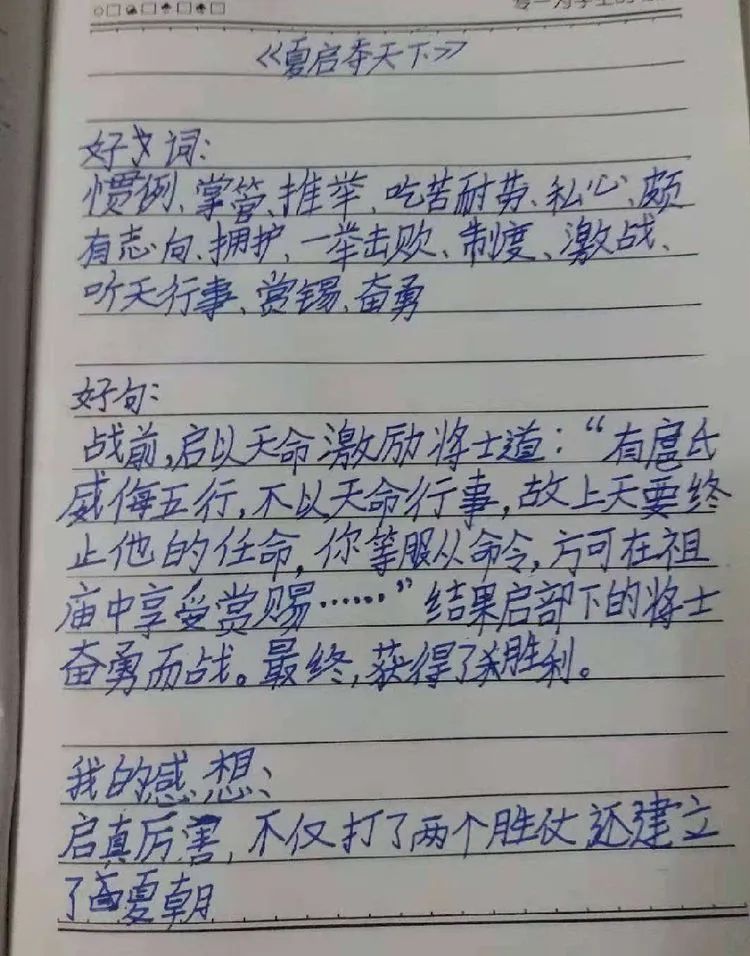 《夏启夺天下》
好词:
惯例、掌管、推举、吃苦耐劳、私心、颇
有志向、拥护、一举击败、制度、激战、
听天行事、赏锡、奋勇
好句:
战前,启以天命激励将士道:“有扈氏
威侮五行,不以天命行事,故上天要终
止他的任命,你等服从命令,方可在祖
庙中享受赏赐……”结果启部下的将士
奋勇而战。最终,获得了胜利。
我的感想:
启真厉害,不仅打了两个胜仗还建立
了夏朝